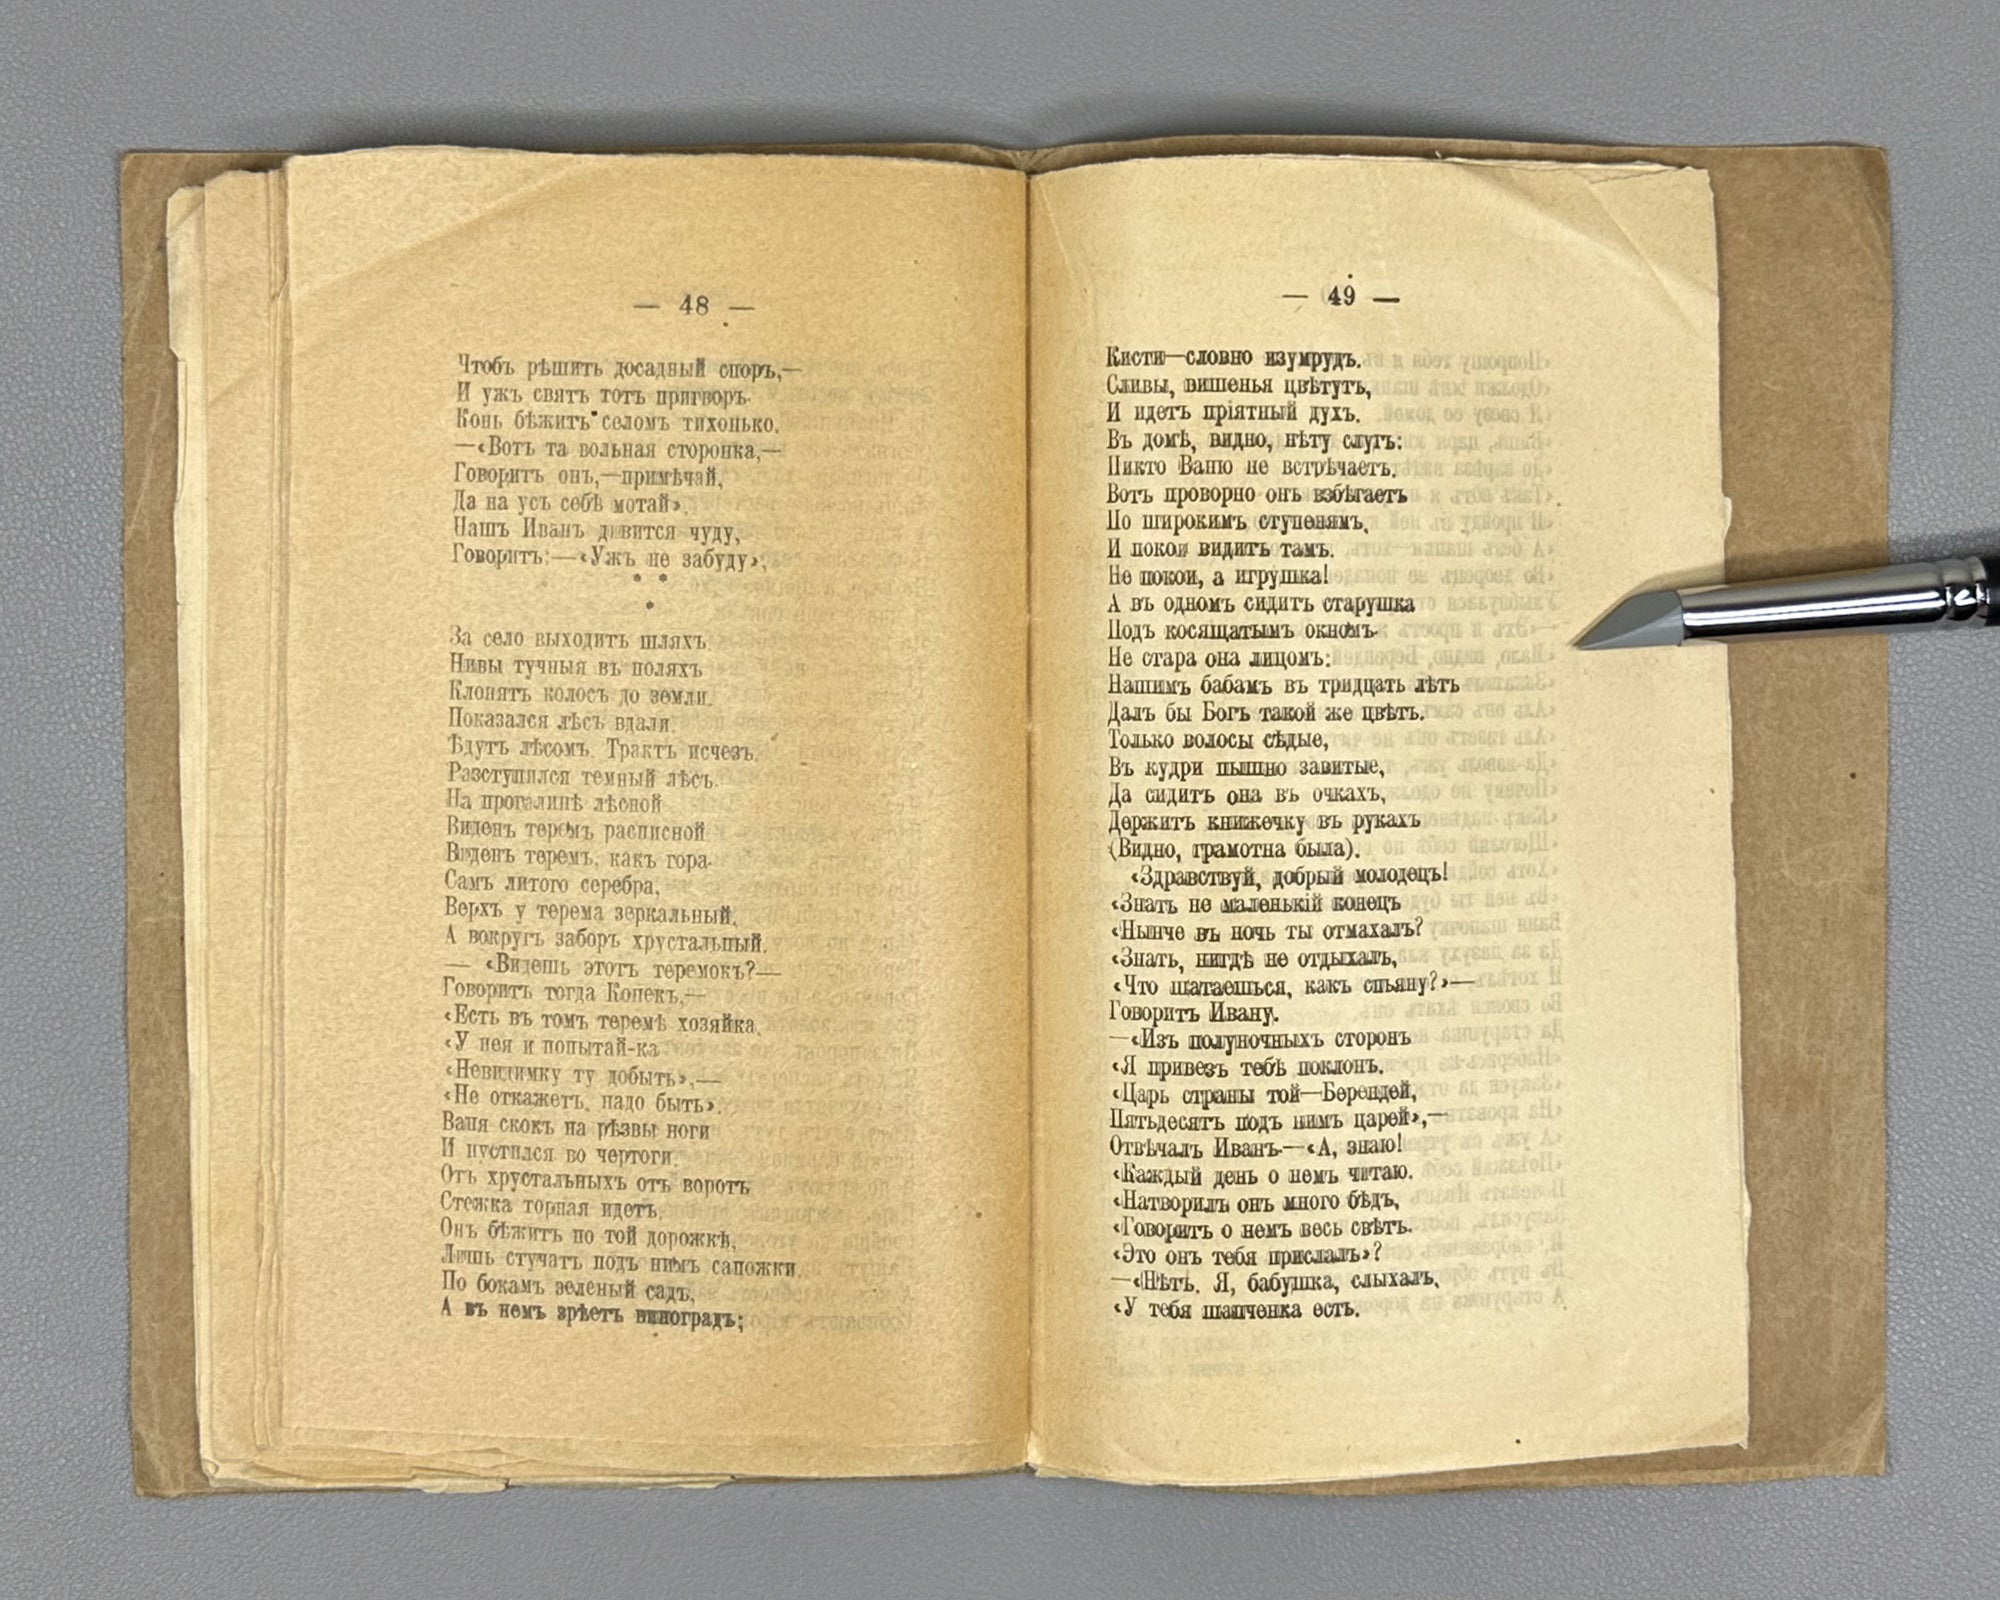 — 48 —
Чтобъ рѣшить досадный споръ,—
И ужъ святъ тотъ приговоръ.
Конь бѣжитъ селомъ тихонько.
—«Вотъ та вольная сторонка,—
Говоритъ онъ,—примѣчай,
Да на усъ себѣ мотай».
Нашъ Иванъ дивится чуду,
Говоритъ:—«Ужъ не забуду».
* *
*
За село выходитъ шляхъ.
Нивы тучныя въ поляхъ
Клонятъ колосъ до земли.
Показался лѣсъ вдали.
Ѣдутъ лѣсомъ. Трактъ исчезъ.
Разступился темный лѣсъ.
На прогалинѣ лѣсной
Виденъ теремъ расписной
Виденъ теремъ, какъ гора.
Самъ литого серебра,
Верхъ у терема зеркальный,
А вокругъ заборъ хрустальный.
— «Видешь этотъ теремокъ?—
Говоритъ тогда Конекъ,—
«Есть въ томъ теремѣ хозяйка.
«У нея и попытай-ка
«Невидимку ту добыть».—
«Не откажетъ, надо быть».
Ваня скокъ на рѣзвы ноги
И пустился во чертоги.
Отъ хрустальныхъ отъ воротъ
Стежка торная идетъ.
Онъ бѣжитъ по той дорожкѣ,
Лишь стучатъ подъ нимъ сапожки.
По бокамъ зеленый садъ,
А въ немъ зрѣетъ виноградъ;
— 49 —
Кисти—словно изумрудъ.
Сливы, вишенья цвѣтутъ,
И идетъ пріятный духъ.
Въ домѣ, видно, нѣту слугъ:
Никто Ваню не встрѣчаетъ.
Вотъ проворно онъ взбѣгаетъ
По широкимъ ступенямъ,
И покои видитъ тамъ.
Не покои, а игрушка!
А въ одномъ сидитъ старушка
Подъ косящатымъ окномъ.
Не стара она лицомъ:
Нашимъ бабамъ въ тридцать лѣтъ
Далъ бы Богъ такой же цвѣтъ.
Только волосы сѣдые,
Въ кудри пышно завитые,
Да сидитъ она въ очкахъ,
Держитъ книжечку въ рукахъ
(Видно, грамотна была).
«Здравствуй, добрый молодецъ!
«Знать не маленькій конецъ
«Нынче въ ночь ты отмахалъ?
«Знать, нигдѣ не отдыхалъ,
«Что шатаешься, какъ спьяну?»—
Говоритъ Ивану.
—«Изъ полуночныхъ сторонъ
«Я привезъ тебѣ поклонъ.
«Царь страны той—Берендей,
Пятьдесятъ подъ нимъ царей»,—
Отвѣчалъ Иванъ.—«А, знаю!
«Каждый день о немъ читаю.
«Натворилъ онъ много бѣдъ,
«Говоритъ о немъ весь свѣтъ.
«Это онъ тебя прислалъ»?
—«Нѣтъ. Я, бабушка, слыхалъ,
«У тебя шапченка есть.